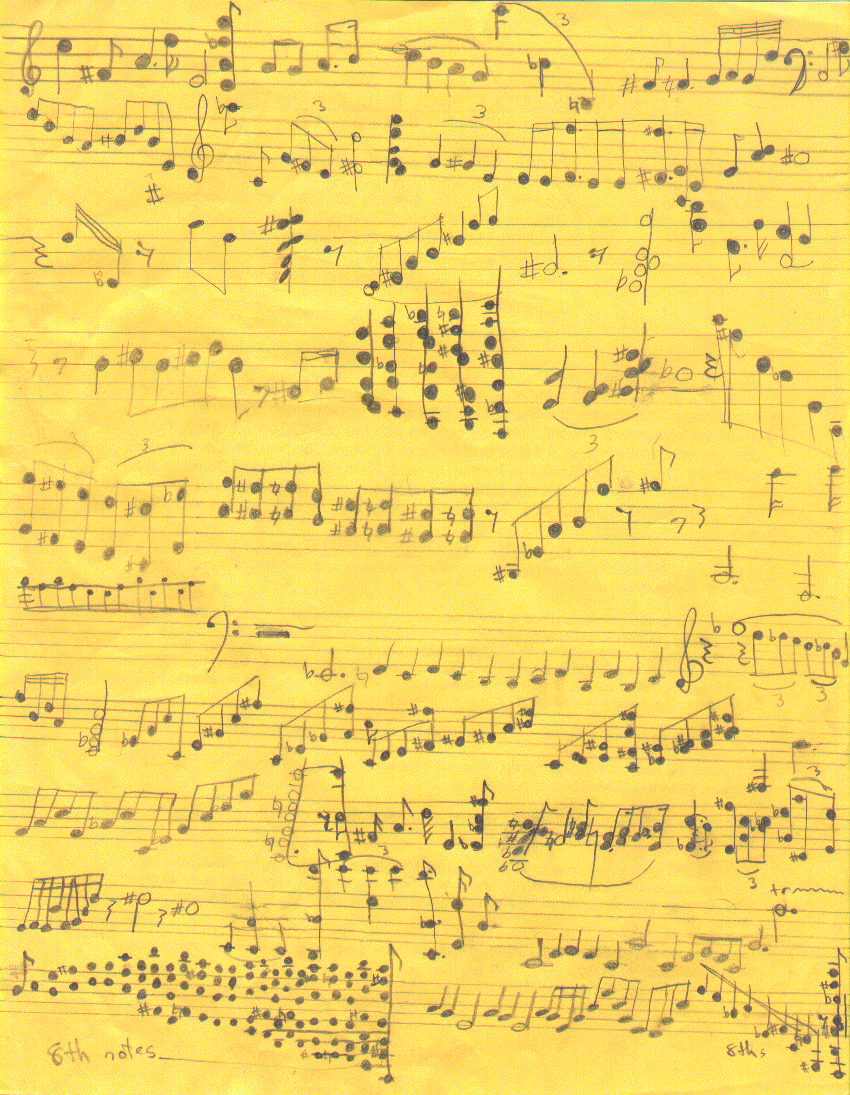 3
3 3
3 3
3
3 3
3
3
3
tr
8th notes 8ths